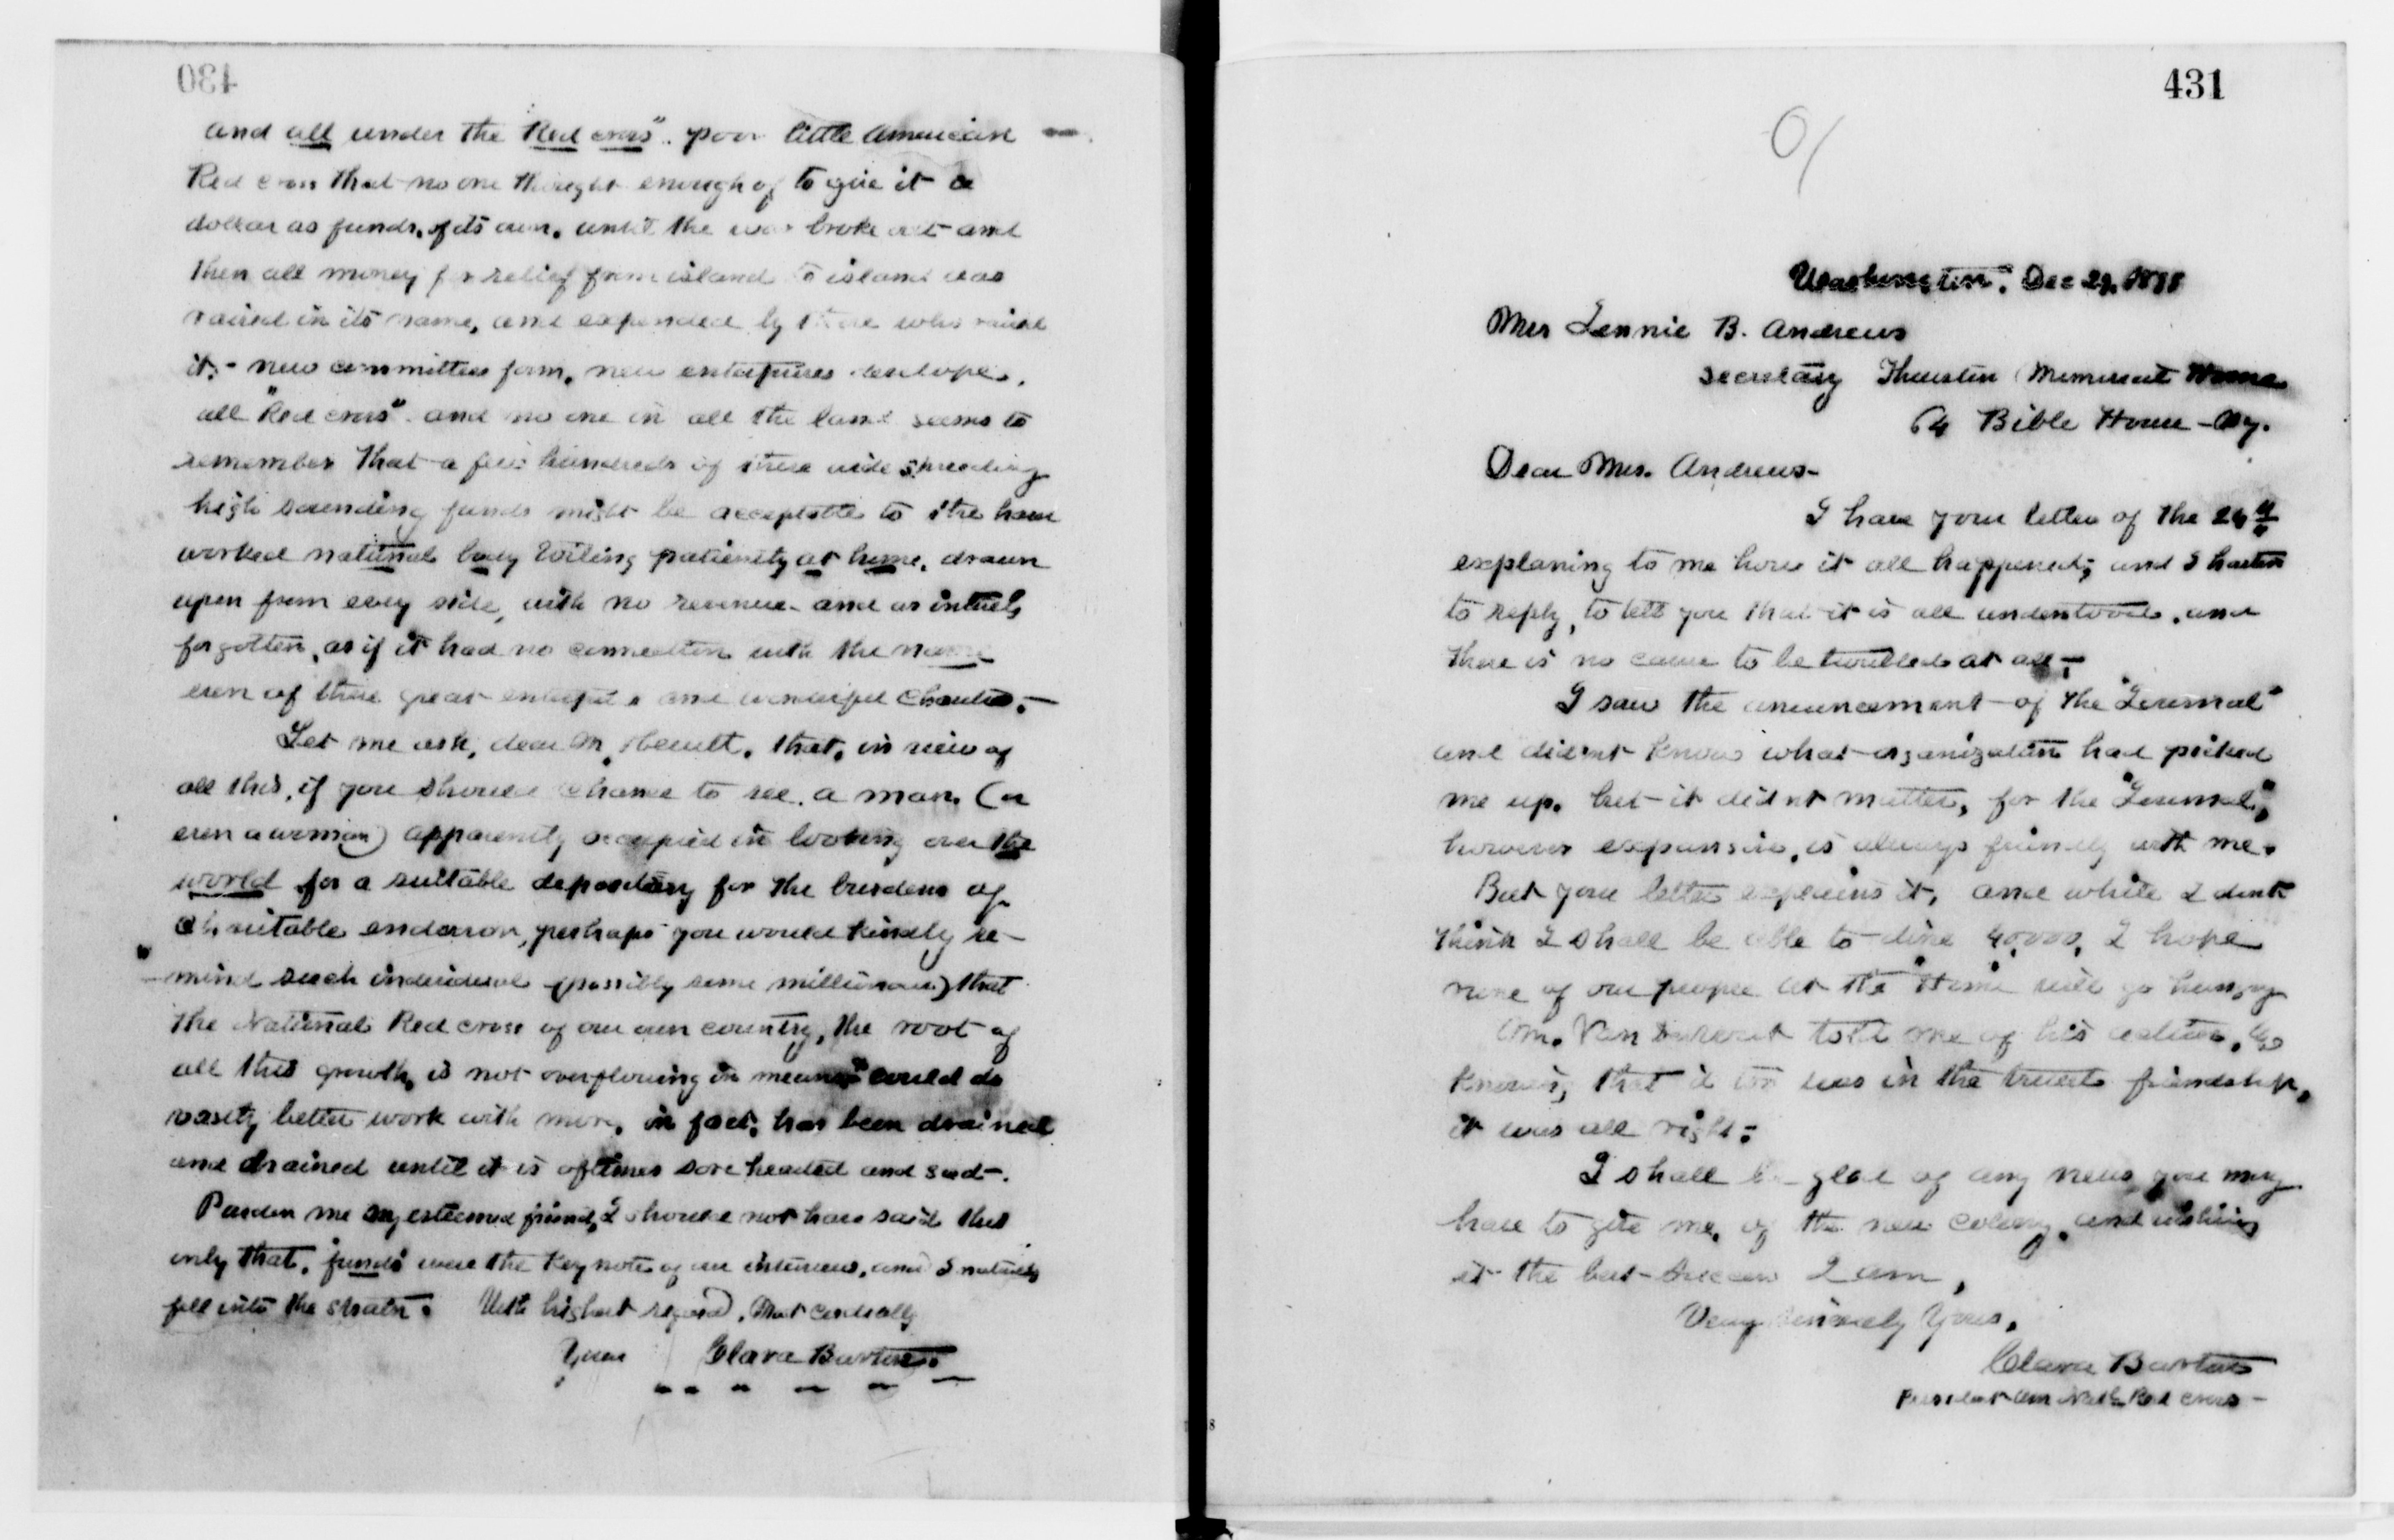 430
and all under the "Red cross". poor little American
Red cross that no one thought enough of to give it a
dollar as funds, of its own, until the war broke out and
then all money for relief from island to island was
raised in its name, and expended by those who raised
it. - new committees form, new enterprises develope,
all "Red cross" and no one in all the land seems to
remember that a few hundreds of these wide spreading
high sounding funds might be acceptable to the hard
worked national body toiling patiently at home, drawn
upon from every side, with no revenue - and as entirely
forgotten, as if it had no connection with the name
even of these great and wonderful charities. -
Let me ask, dear Mr. that, in view of
all this, if you should chance to see, a man (or
even a woman) apparently occupied in looking over the
world for a suitable depositary for the burdens of
charitable endeavor, perhaps you would kindly re-
mind such individual (possibly some millionaire) that
the National Red cross of our own country, the root of
all this growth, is not overflowing in means, could do
vastly better work with more, in fact, has been drained
and drained until it is oftimes sore headed and sad -.
Pardon me my esteemed friend, I should not have said this
only that, "funds" were the key note of our interview, and I naturally
fell into the strain. With highest regard, Most cordially
Yours Clara Barton.
431
Washington, Dec 29,
Mrs Jennie B. Andrews
Secretary Thurston Memorial Home
64 Bible House - Ny.
Dear Mrs. Andrews -
I have your letter of the 24th
explaning to me how it all happened; and I hasten
to reply, to tell you that it is all understood, and
there is no cause to be troubled at all -
I saw the anouncement of the "Journal"
and didnt know what organization had picked
me up, but it didnt matter, for the "Journal",
however expansive, is always friendly with me.
But your letter explains it, and while I dont
think I shall be able to dine 40,000, I hope
none of our people at the "Home" will go hungry
told one of his
knows, that it was in the truest friendship,
it was all right:
I shall be glad of any news you may
have to give me, of the new colony, and wishing
it the best success I am,
Very sincerely Yours,
Clara Barton
President Am Natl Red Cross -